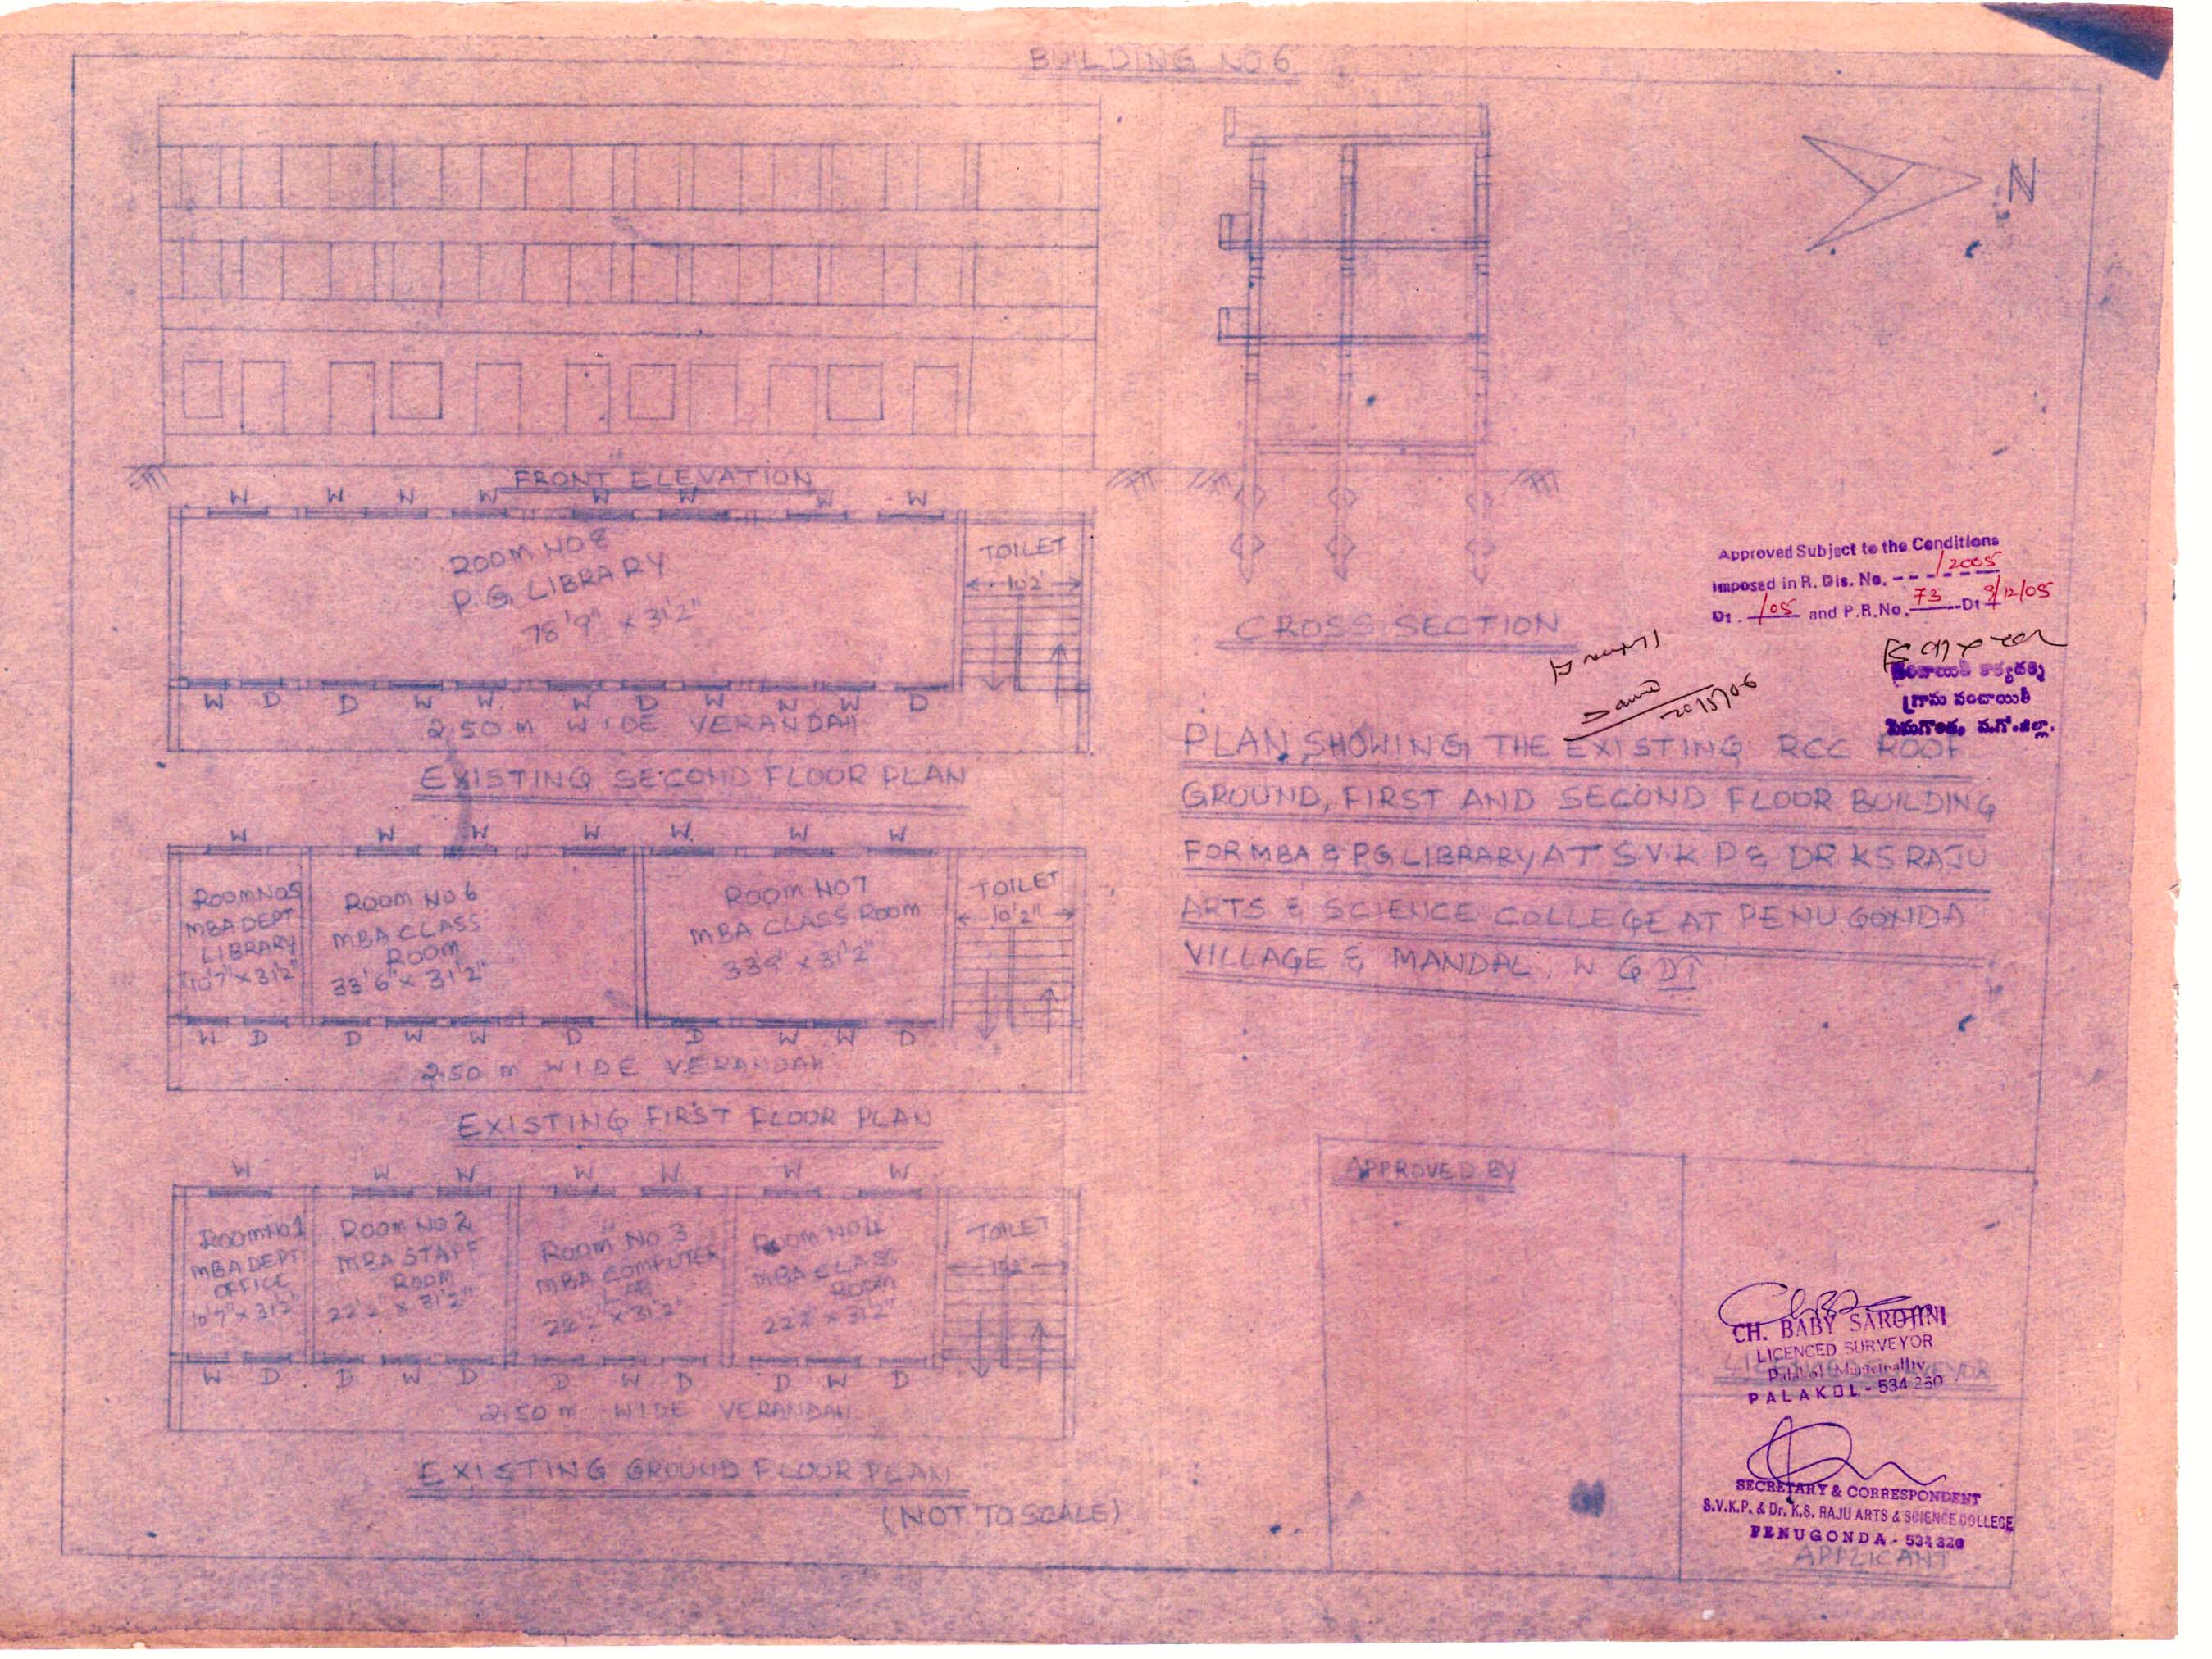 BUILDING NO 6
N
FRONT ELEVATION
W W W W W W W W
ROOM NO 8
P.G. LIBRARY
78'9" x 31'2"
TOILET
10'2"
W D D W W W D W W W D
2.50 m WIDE VERANDAH
EXISTING SECOND FLOOR PLAN
W W W W W W W
ROOM NO 5
MBA DEPT
LIBRARY
10'7" x 31'2"
ROOM NO 6
MBA CLASS
ROOM
33'6" x 31'2"
ROOM NO 7
MBA CLASS ROOM
33'9" x 31'2"
TOILET
10'2"
W D D W W D D W W D
2.50 m WIDE VERANDAH
EXISTING FIRST FLOOR PLAN
W W W W W W W
ROOM NO 1
MBA DEPT
OFFICE
10'7" x 31'2"
ROOM NO 2
MBA STAFF
ROOM
22'2" x 31'2"
ROOM NO 3
MBA COMPUTER
LAB
22'2" x 31'2"
ROOM NO 4
MBA CLASS
ROOM
22'2" x 31'2"
TOILET
10'2"
W D D W D D W D D W D
2.50 m WIDE VERANDAH
EXISTING GROUND FLOOR PLAN
(NOT TO SCALE)
CROSS SECTION
Approved Subject to the Conditions
Imposed in R. Dis. No. /2005
Dt. /05 and P.R.No. 73 Dt 9/12/05
పంచాయితీ కార్యదర్శి
గ్రామ పంచాయితీ
పెనుగొండ, ప.గో.జిల్లా.
PLAN SHOWING THE EXISTING RCC ROOF
GROUND, FIRST AND SECOND FLOOR BUILDING
FOR MBA & PG LIBRARY AT S V K P & DR K S RAJU
ARTS & SCIENCE COLLEGE AT PENUGONDA
VILLAGE & MANDAL, W G DT
APPROVED BY
CH. BABY SAROJINI
LICENCED SURVEYOR
Palakol Municipality
PALAKOL - 534 260
LICENCED SURVEYOR
SECRETARY & CORRESPONDENT
S.V.K.P. & Dr. K.S. RAJU ARTS & SCIENCE COLLEGE
PENUGONDA - 534 320
APPLICANT